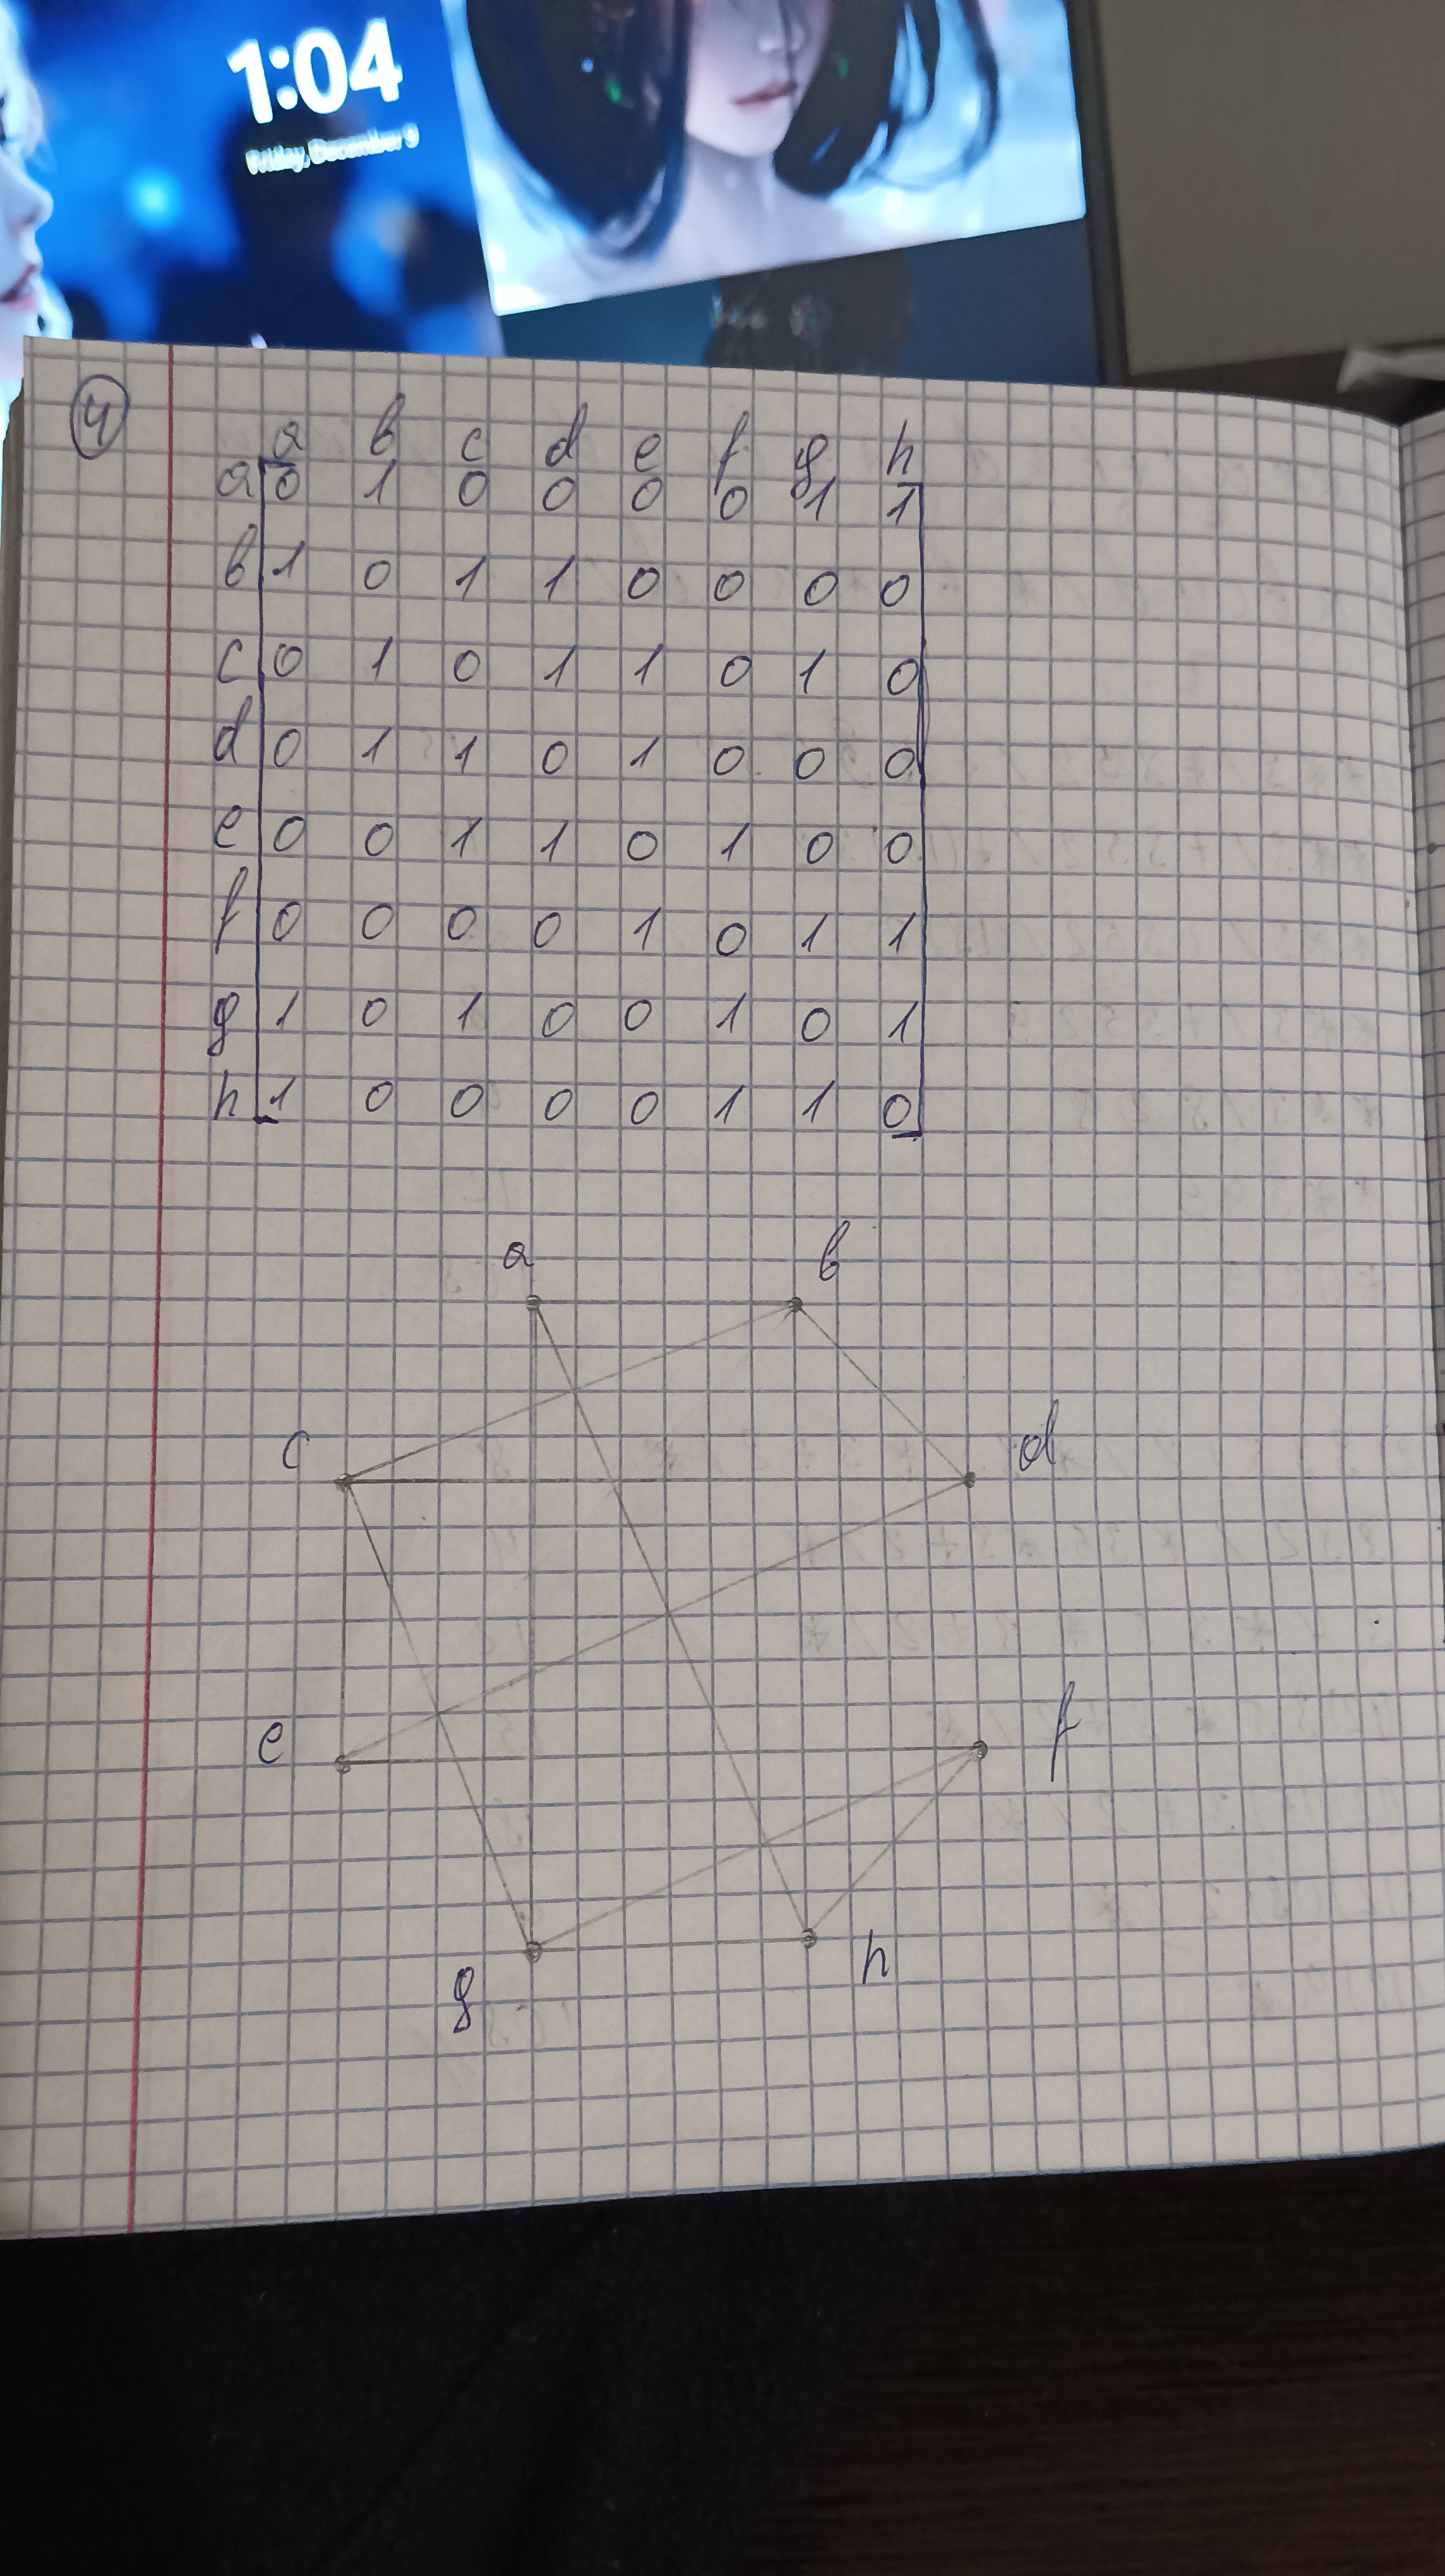 1:04
Friday, December 9
4
a b c d e f g h
a 0 1 0 0 0 0 1 1
b 1 0 1 1 0 0 0 0
c 0 1 0 1 1 0 1 0
d 0 1 1 0 1 0 0 0
e 0 0 1 1 0 1 0 0
f 0 0 0 0 1 0 1 1
g 1 0 1 0 0 1 0 1
h 1 0 0 0 0 1 1 0
a b
c d
e f
g h